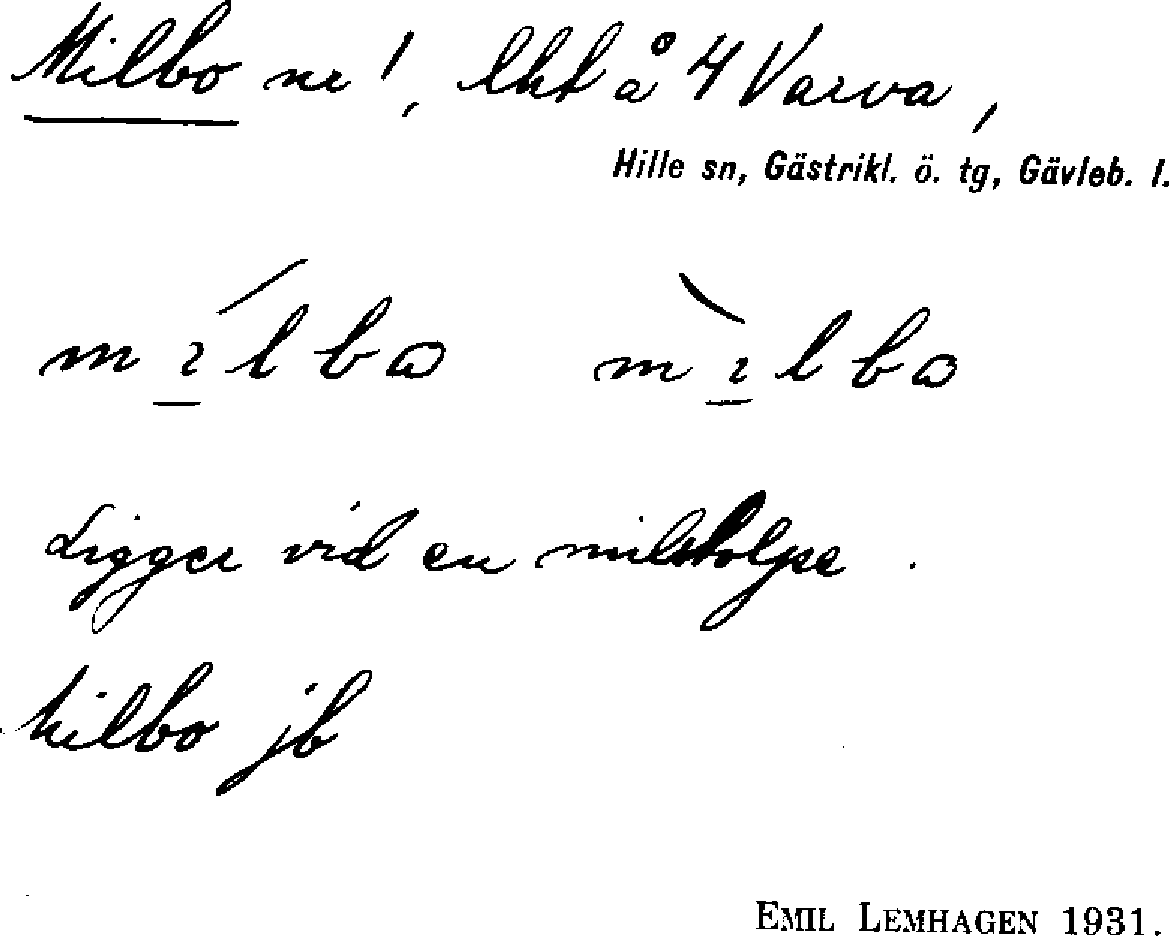 Milbo nr 1, lht å 4 Varva,
Hille sn, Gästrikl. ö. tg, Gävleb. l.
Ligger vid en milstolpe.
Milbo jb
EMIL LEMHAGEN 1931.